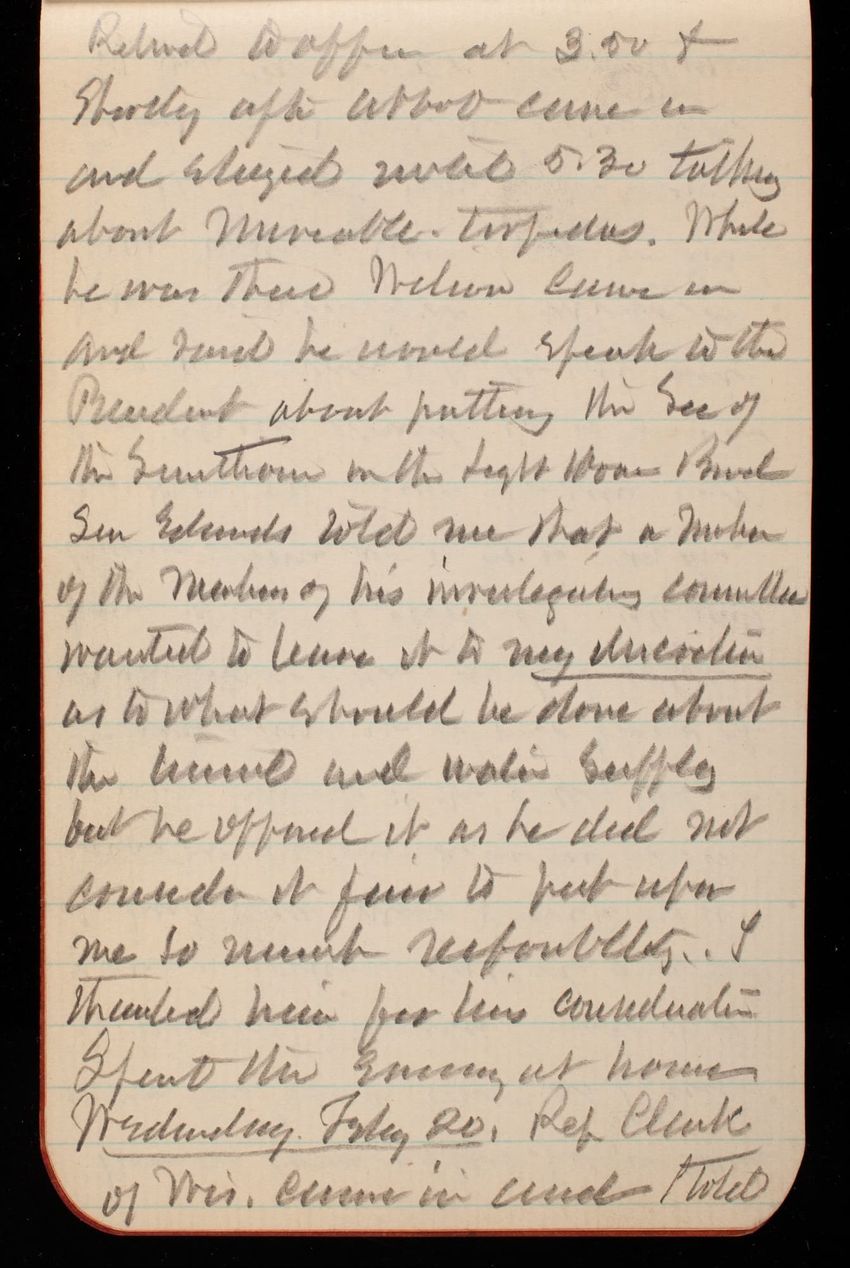 Retired to office at 3.50 &
Shortly after Abbot came in
and stayed until 5.30 talking
about Moveable torpedos. While
he was there Wilson came in
and said he would speak to the
President about putting the Sec of
the on the Light House Board
Sen Edmunds told me that a Number
of the Members of his investigating committee
wanted to leave it to my discretion
as to what should be done about
the tunnel and water supply
but he opposed it as he did not
consider it fair to put upon
me so much responsibility. I
thanked him for his consideration
Spent the Evening at home
Wednesday Feby 20. Rep Clark
of Wis. came in and I told